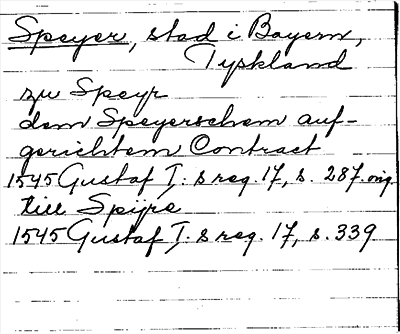 Speyer, stad i Bayern,
Tyskland
zu Speyr
dem Speyerschem auf-
gerichtem Contract
1545 Gustaf I:s reg. 17, s. 287. orig.
till Spijre
1545 Gustaf I:s reg. 17, s. 339